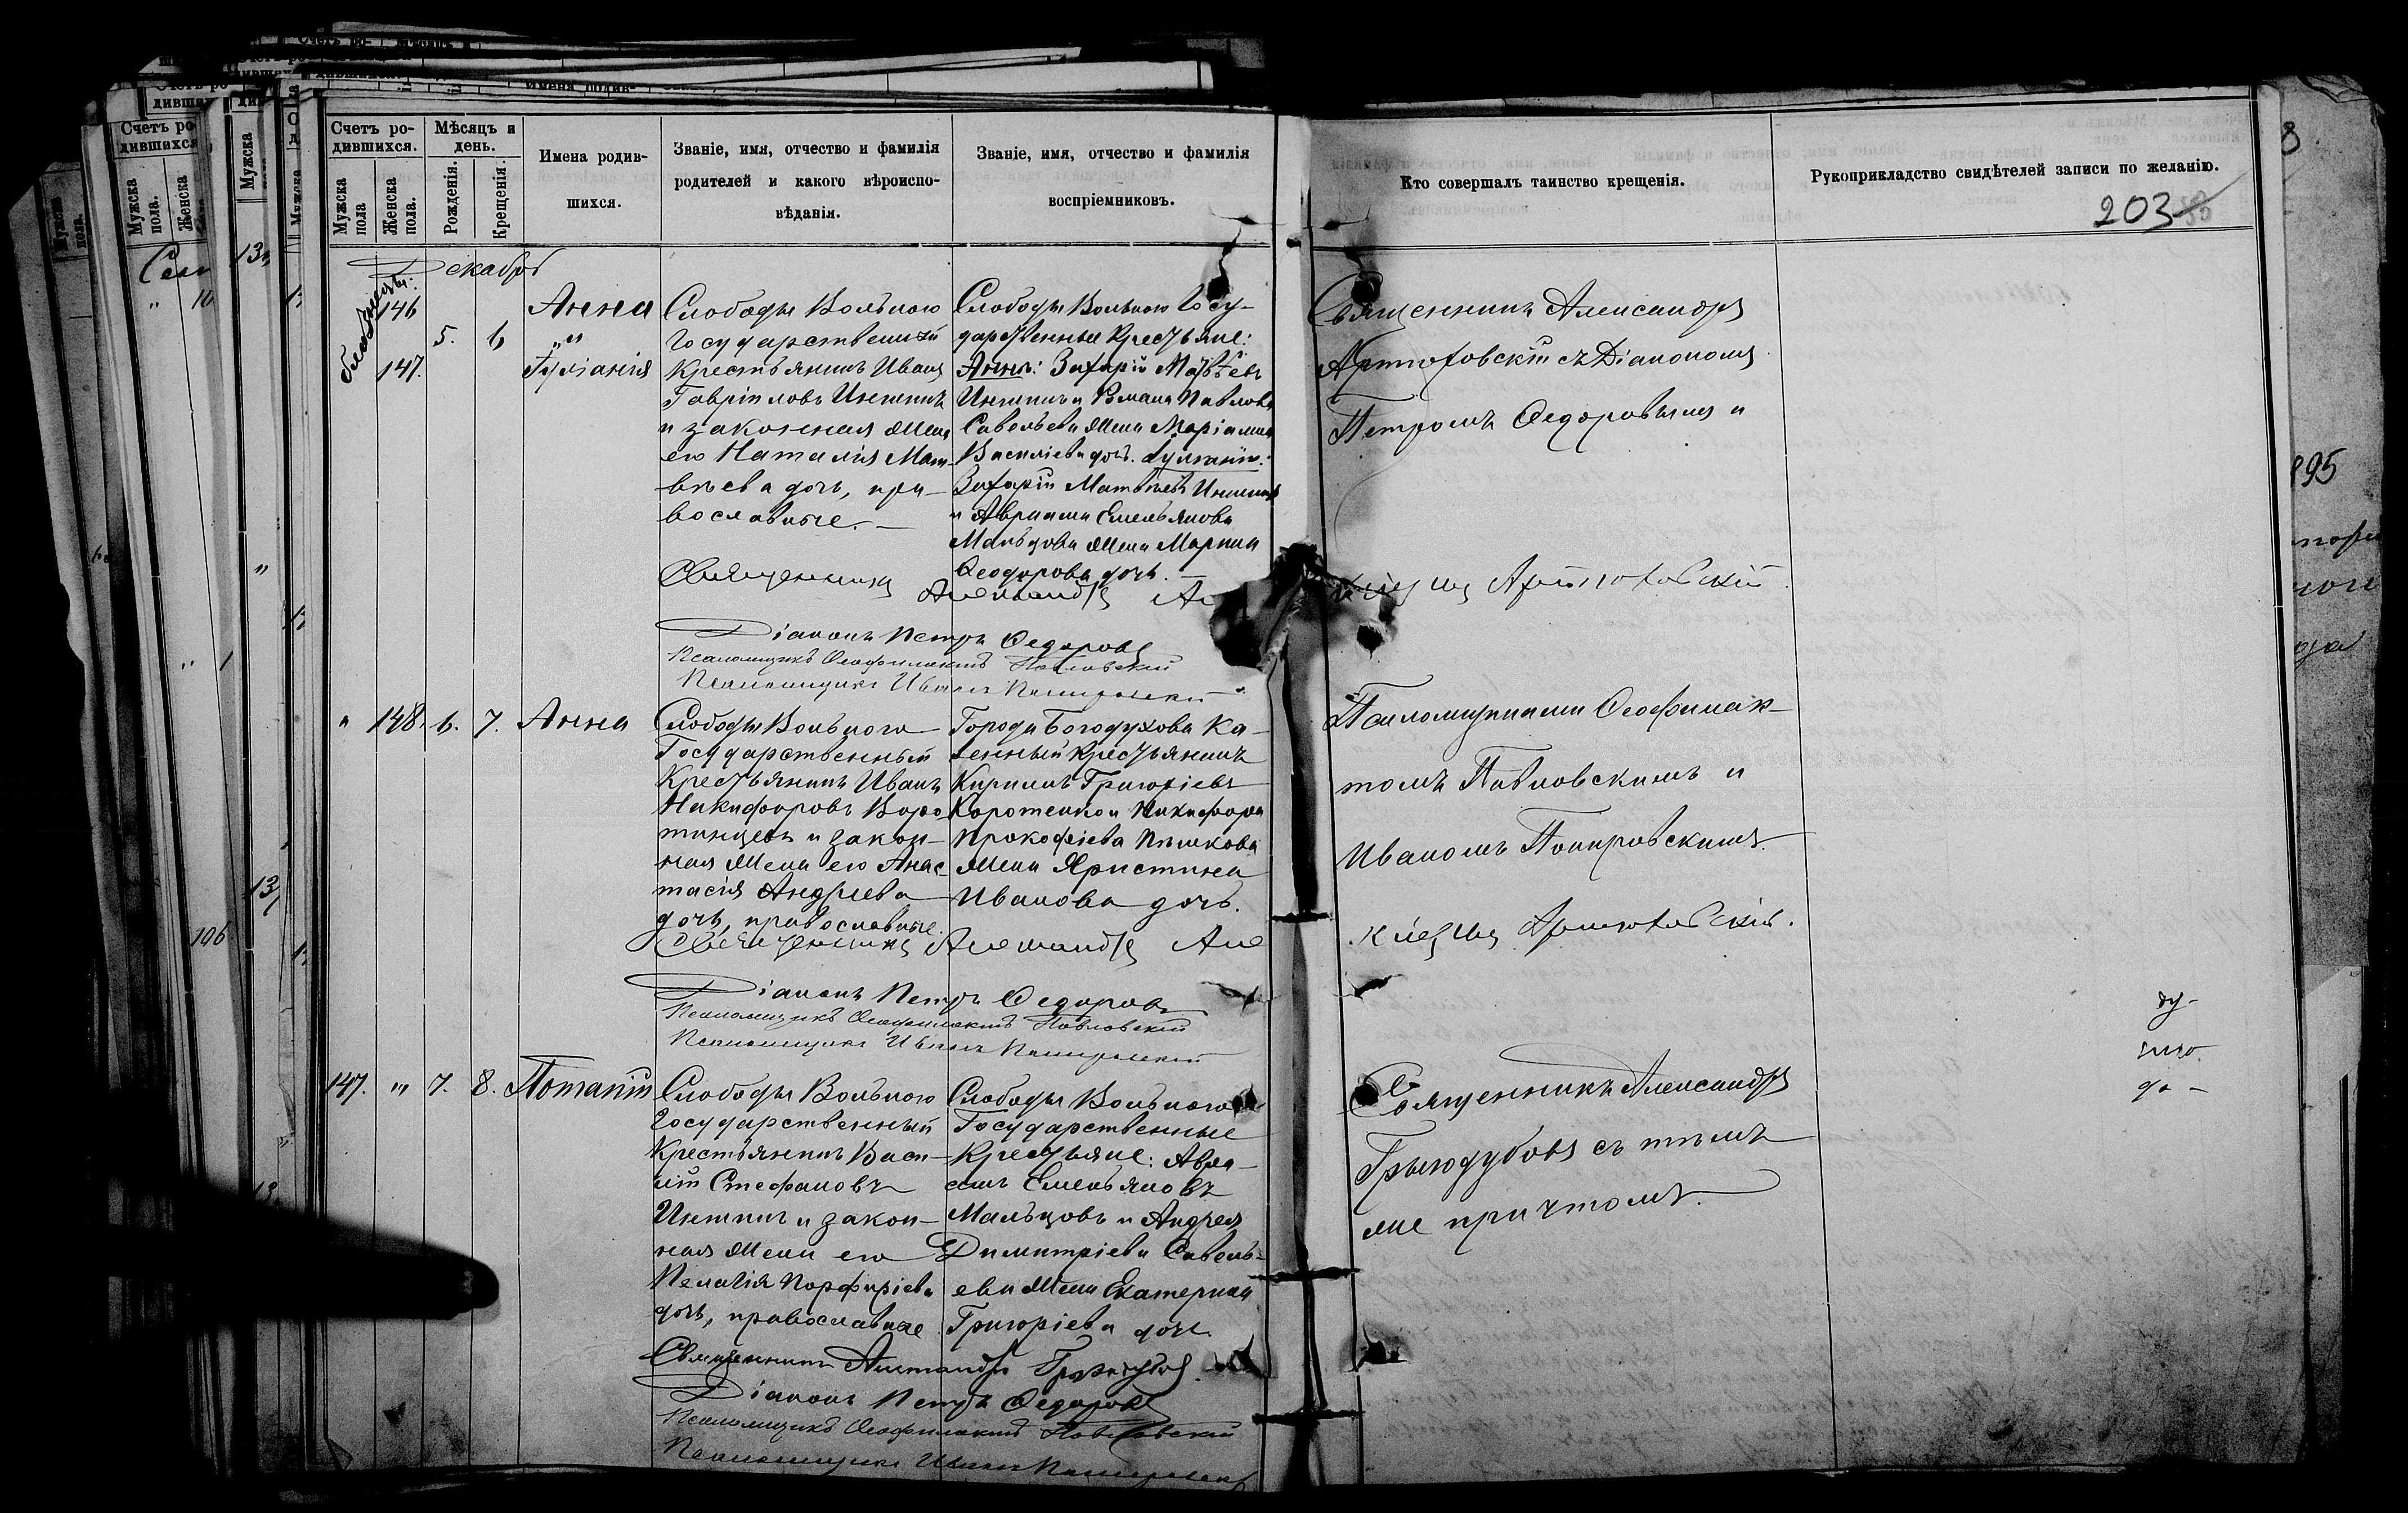 Счетъ ро-
дившихся.
Мужска
пола
Женска
пола.
Мѣсяцъ и
день.
Рожденія.
Крещенія.
Имена родив-
шихся.
Званіе, имя, отчество и фамилія
родителей и какого вѣроиспо-
вѣданія.
Званіе, имя, отчество и фамилія
воспріемниковъ.
Кто совершалъ таинство крещенія.
Рукоприкладство свидѣтелей записи по желанію.
203
Декабрь
близнецы:
146
147.
5.
6
Анна
"и"
Іуліанія
Слободы Вольного
Государственный
Крестьянинъ Иванъ
Гавріиловъ
и законная жена
его Наталія Мат-
вѣева дочь, пра-
вославные.
Слободы Вольного Госу-
дарственные Крестьяне:
Анны: Захарій Матвѣевъ
и Романа Павлова
Савельева жена Маріамна
Василіева дочь. Іуліаніи:
Захарій Матвѣевъ
и Авраама Емельянова
Мальцова жена Марина
Ѳеодорова дочь.
Священникъ Александръ
Артюховскій съ Діакономъ
Петромъ Ѳедоровымъ и
Священникъ Александръ Але
ксѣевъ Артюховскій.
Діаконъ Петръ Ѳедоровъ
Псаломщикъ Ѳеофилактъ Павловскій
Псаломщикъ Иванъ Покировскій
"
148.
6.
7.
Анна
Слободы Вольного
Государственный
Крестьянинъ Иванъ
Никифоровъ Воро
тинцевъ и закон-
ная жена его Анас-
тасія Андреева
дочь, православные.
Города Богодухова Ка-
зенный Крестьянинъ
Кириллъ Григоріевъ
Коротенко и Никифора
Прокофіева Пѣшкова
жена Христина
Иванова дочь.
Псаломщиками Ѳеофилак-
томъ Павловскимъ и
Иваномъ Покировскимъ.
Священникъ Александръ Але
ксѣевъ Артюховскій.
Діаконъ Петръ Ѳедоровъ
Псаломщикъ Ѳеофилактъ Павловскій
Псаломщикъ Иванъ Покировскій
147.
"
7.
8.
Потапій
Слободы Вольного
Государственный
Крестьянинъ Васи-
лій Стефановъ
и закон-
ная жена его
Пелагія Порфиріева
дочь, православные
Слободы Вольного
Государственные
Крестьяне: Авра-
амъ Емельяновъ
Мальцовъ и Андрея
Димитріева Савель-
ева жена Екатерина
Григоріева дочь.
Священникъ Александръ
съ тѣмъ
же причтомъ.
Священникъ Александръ
Діаконъ Петръ Ѳедоровъ
Псаломщикъ Ѳеофилактъ Павловскій
Псаломщикъ Иванъ Покировскій